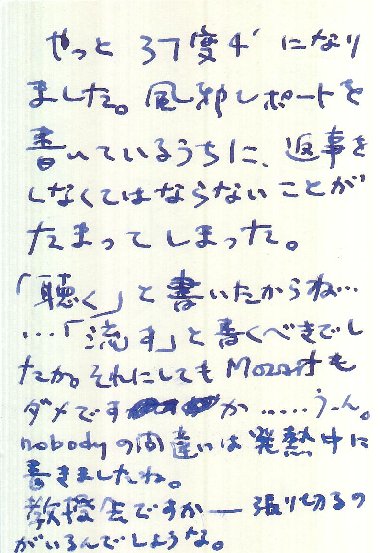 やっと 37度4' になり
ました。風邪レポートを
書いているうちに、返事を
しなくてはならないことが
たまってしまった。
「聴く」と書いたからね…
…「流す」と書くべきでし
たか。それにしてもMozartも
ダメですか……うーん。
nobodyの間違いは発熱中に
書きましたね。
教授会ですか―張り切るの
がいるんでしょうな。